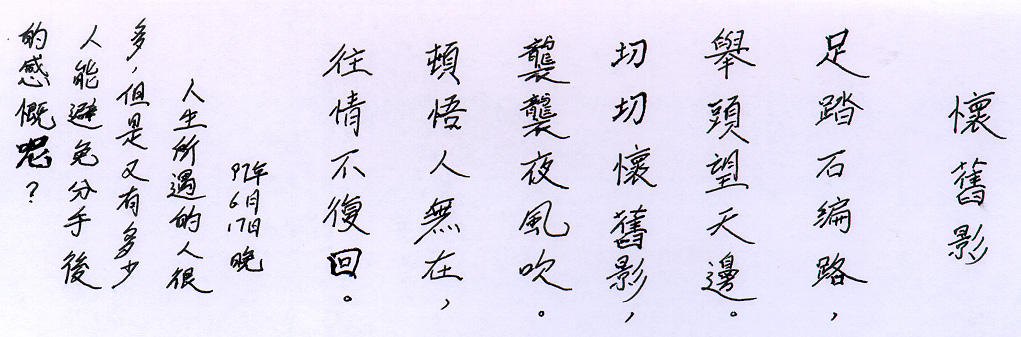 懷舊影
足踏石編路，
舉頭望天邊。
切切懷舊影，
襲襲夜風吹。
頓悟人無在，
往情不復回。
97年
6月
17日
晚
人生所遇的人很
多，但是又有多少
人能避免分手後
的感慨呢？